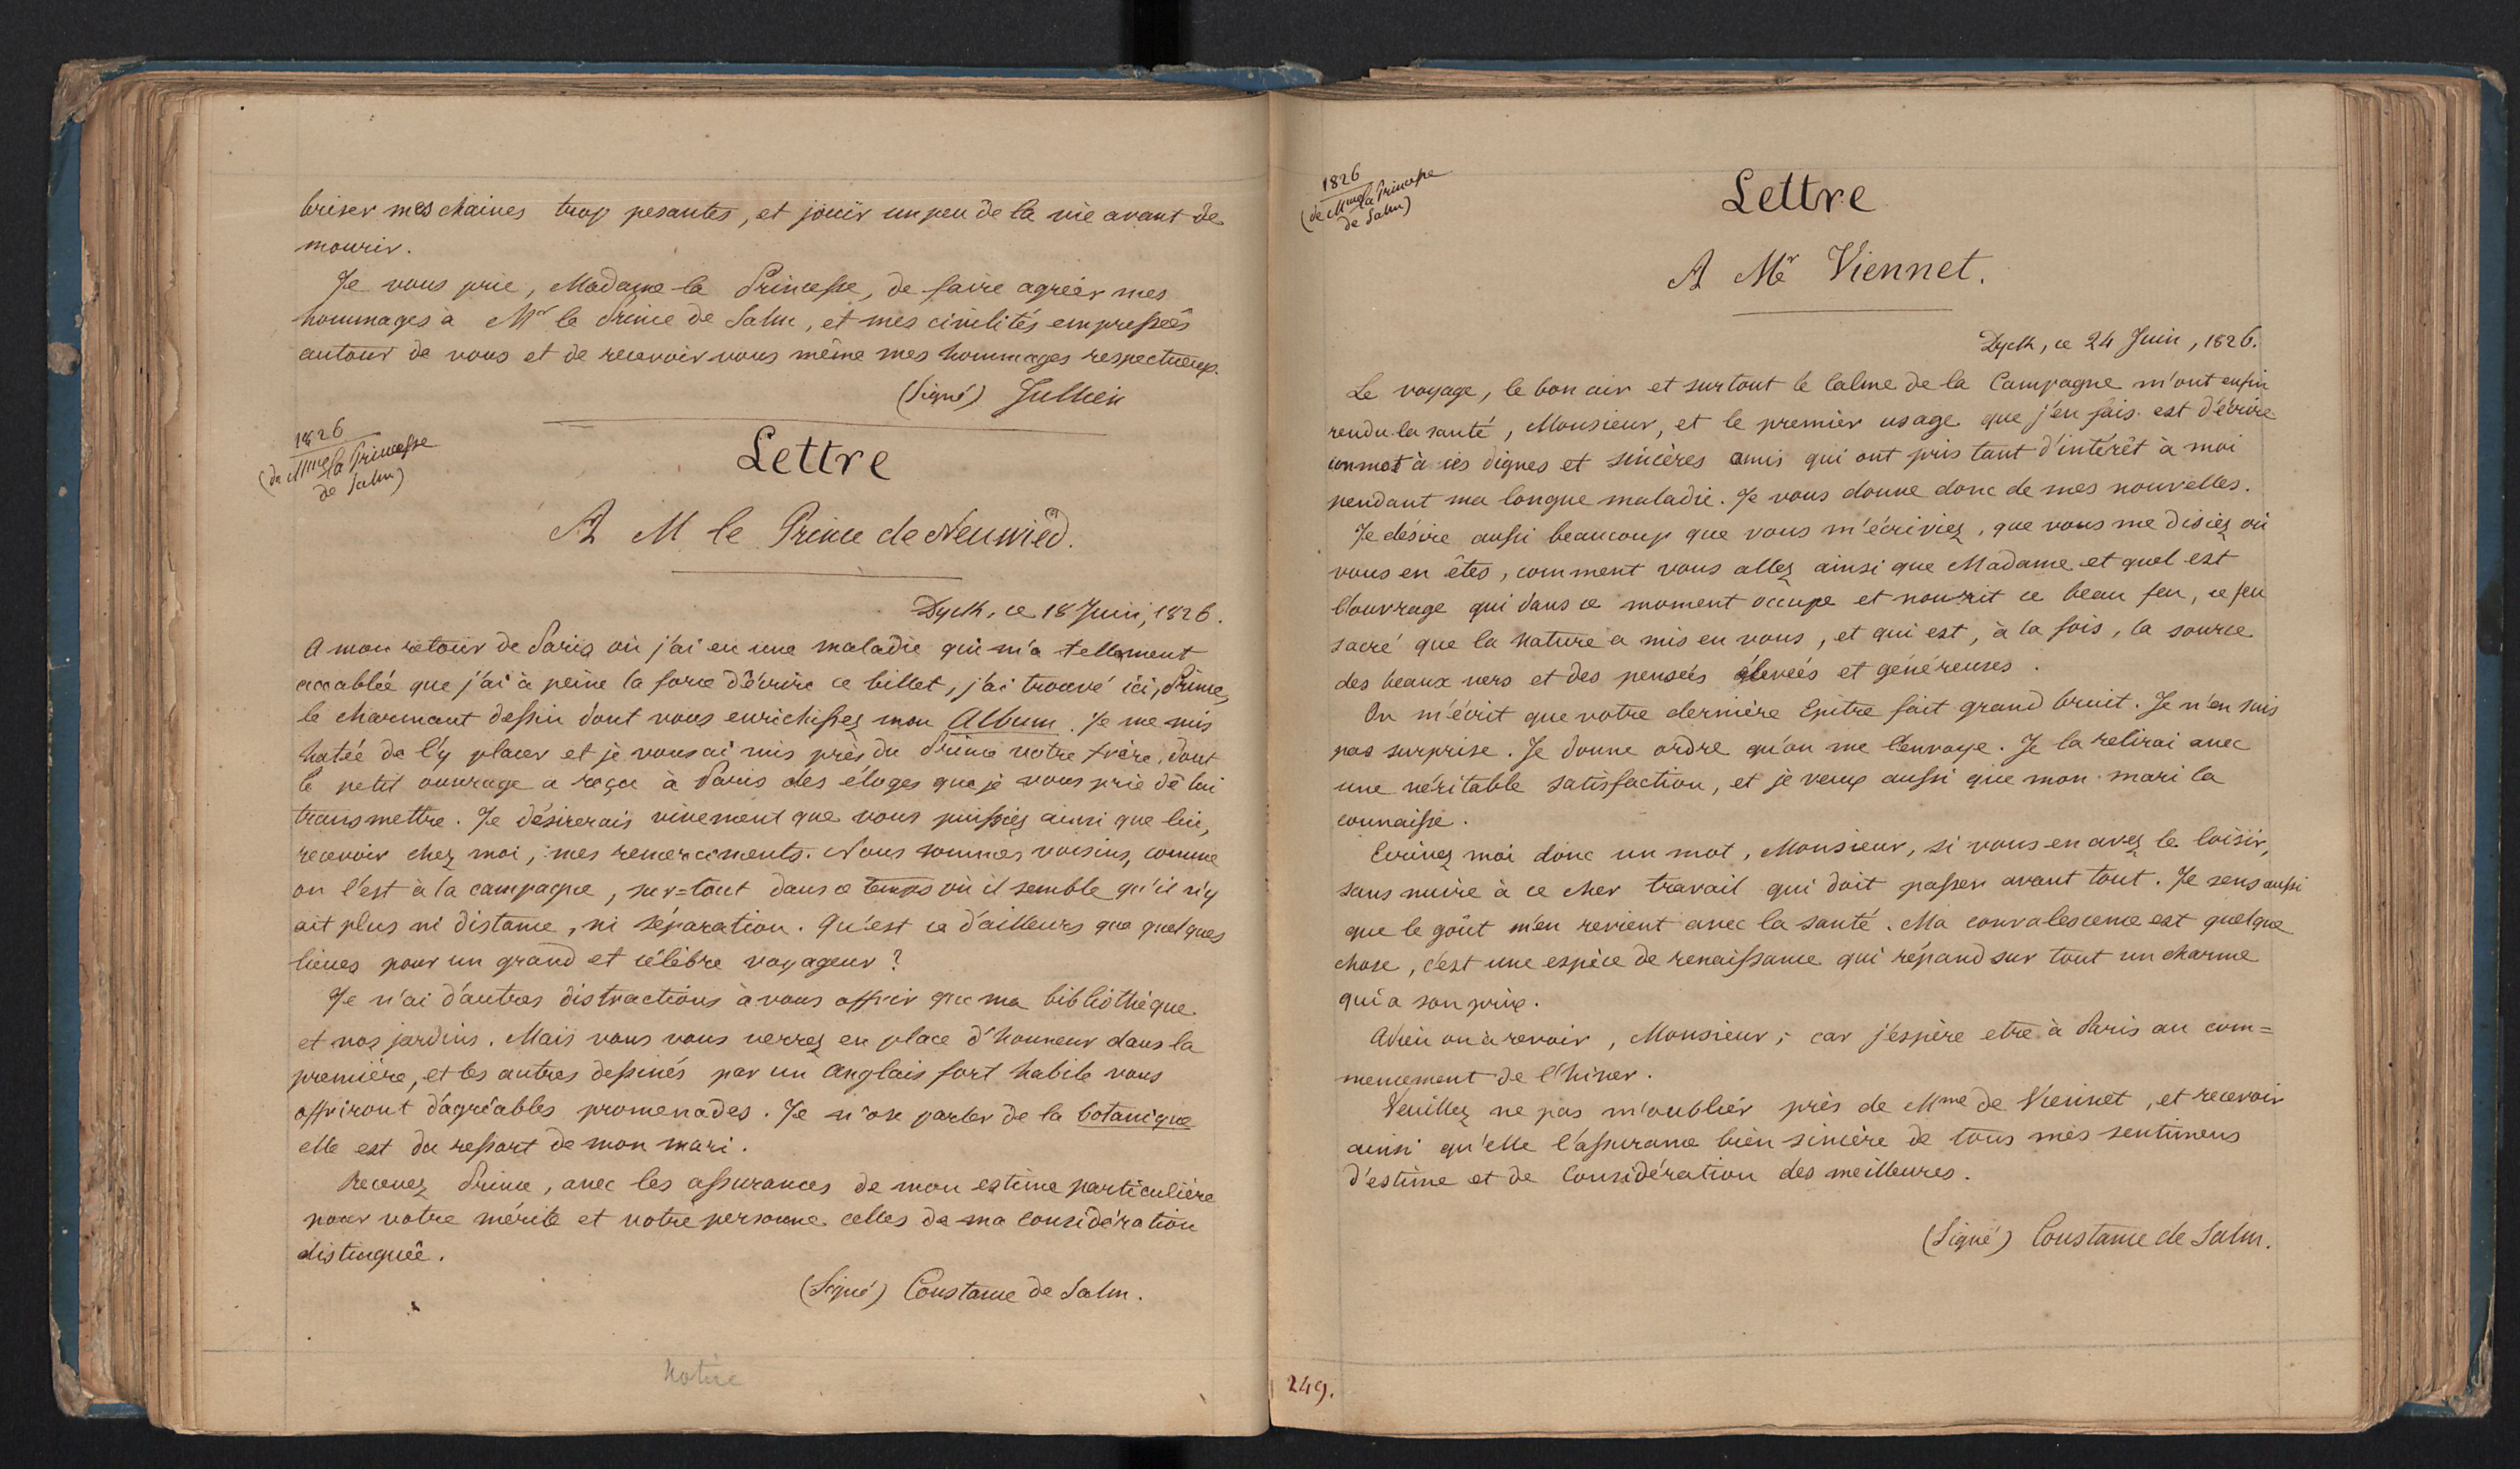 briser mes chaines trop pesantes, et jouir un peu de la vie avant de
mourir.
Je vous prie, Madame la Princesse, de faire agréer mes
hommages à Mr le Prince de Salm, et mes civilités empressées
autour de vous et de recevoir vous même mes hommages respectueux.
(Signé) Jullien
1826
(de Mme la Princesse
de Salm)
Lettre
A M le Prince de Neuwied.
Dyck, ce 18 Juin, 1826.
A mon retour de Paris où j'ai eu une maladie qui m'a tellement
accablée que j'ai à peine la force d'écrire ce billet, j'ai trouvé ici, Prince,
le charmant dessin dont vous enrichissez mon Album. Je me suis
hatée de l'y placer et je vous ai mis près du Prince votre frère, dont
le petit ouvrage a reçu à Paris des éloges que je vous prie de lui
transmettre. Je désirerais vivement que vous puissiez ainsi que lui,
recevoir chez moi, mes remerciments. Nous sommes voisins, comme
on l'est à la campagne, sur=tout dans ce temps où il semble qu'il n'y
ait plus ni distance, ni séparation. Qu'est ce d'ailleurs que quelques
lieues pour un grand et célèbre voyageur ?
Je n'ai d'autres distractions à vous offrir que ma bibliothèque
et nos jardins. Mais vous vous verrez en place d'honneur dans la
première, et les autres dessinés par un Anglais fort habile vous
offriront d'agréables promenades. Je n'ose parler de la botanique
elle est du ressort de mon mari.
Recevez Prince, avec les assurances de mon estime particulière
pour votre mérite et votre personne celles de ma considération
distinguée.
(Signé) Constance de Salm.
1826
(de Mme la Princesse
de Salm)
Lettre
A Mr Viennet.
Dyck, ce 24 Juin, 1826.
Le voyage, le bon air et surtout le calme de la Campagne m'ont enfin
rendu la santé, Monsieur, et le premier usage que j'en fais est d'écrire
un mot à ces dignes et sincères amis qui ont pris tant d'intérêt à moi
pendant ma longue maladie. Je vous donne donc de mes nouvelles.
Je désire aussi beaucoup que vous m'écriviez, que vous me disiez où
vous en êtes, comment vous allez ainsi que Madame et quel est
l'ouvrage qui dans ce moment occupe et nourrit ce beau feu, ce feu
sacré que la nature a mis en vous, et qui est, à la fois, la source
des beaux vers et des pensées élevées et généreuses.
On m'écrit que votre dernière Epitre fait grand bruit. Je n'en suis
pas surprise. Je donne ordre qu'on me l'envoye. Je la relirai avec
une véritable satisfaction, et je veux aussi que mon mari la
connaisse.
Ecrivez moi donc un mot, Monsieur, si vous en avez le loisir,
sans nuire à ce cher travail qui doit passer avant tout. Je sens aussi
que le goût m'en revient avec la santé. Ma convalescence est quelque
chose, c'est une espèce de renaissance qui répand sur tout un charme
qui a son prix.
Adieu ou à revoir, Monsieur ; car j'espère etre à Paris au com=
mencement de l'hiver.
Veuillez ne pas m'oublier près de Mme de Viennet, et recevoir
ainsi qu'elle l'assurance bien sincère de tous mes sentimens
d'estime et de Considération des meilleures.
(Signé) Constance de Salm.
249.